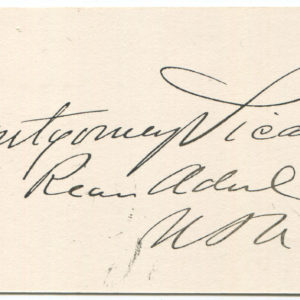 ntgomery Sica
Rear Adml
USN